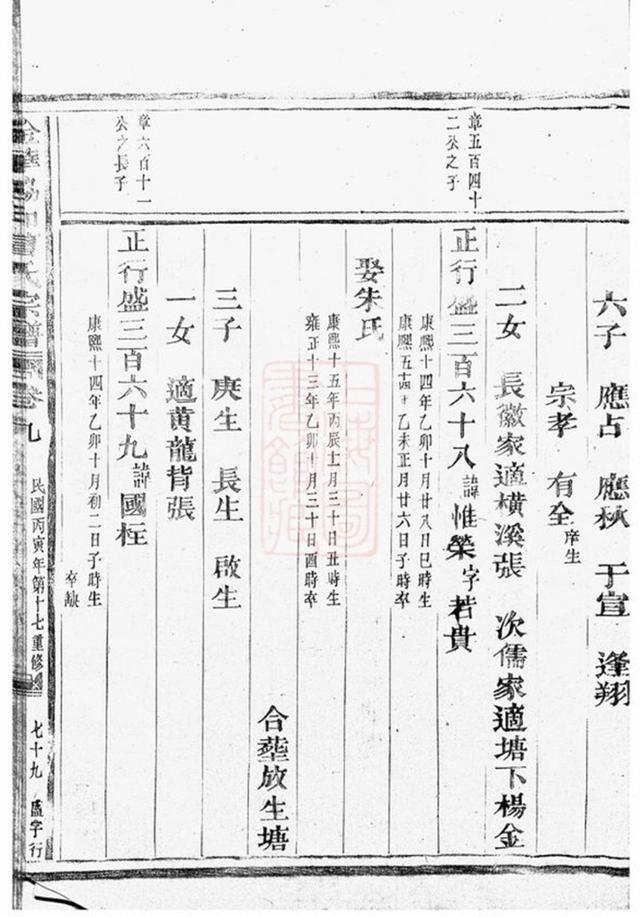 六子 應占 應秋 于宣 逢翔
宗孝 有全庠生
二女 長徽家適橫溪張 次儒家適塘下楊金
章五百四十二公之子
正行盛三百六十八諱惟榮字若貴
康熙十四年乙卯十月廿八日巳時生
康熙五十四年乙未正月廿六日子時卒
娶朱氏
康熙十五年丙辰十月三十日丑時生
雍正十三年乙卯十月三十日酉時卒
合塟放生塘
三子 庚生 長生 啟生
一女 適黃龍背張
章六百十一公之長子
正行盛三百六十九諱國桎
康熙十四年乙卯十月初二日子時生
卒缺
氏宗譜 卷九 民國丙寅年第十七重修 七十九 盧字行